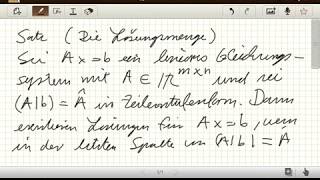 Satz (Die Lösungsmenge)
Sei Ax=b ein lineares Gleichungs-
system mit A ∈ ℝ^{m×n} und sei
(A|b) = Â in Zeilenstufenform. Dann
existieren Lösungen für Ax=b, wenn
in der letzten Spalte von (A|b) = Â